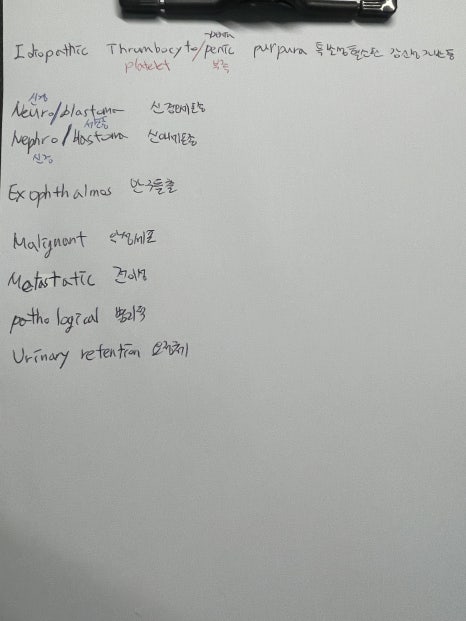 -penia
Idiopathic Thrombocyto/penic purpura 특발성 혈소판 감소성 자반증
platelet 부족
신경
Neuro/blastoma 신경모세포종
Nephro/blastoma 신모세포종
신장
Exophthalmos 안구돌출
Malignant 악성세포
Metastatic 전이성
pathological 병리학
Urinary retention 요정체